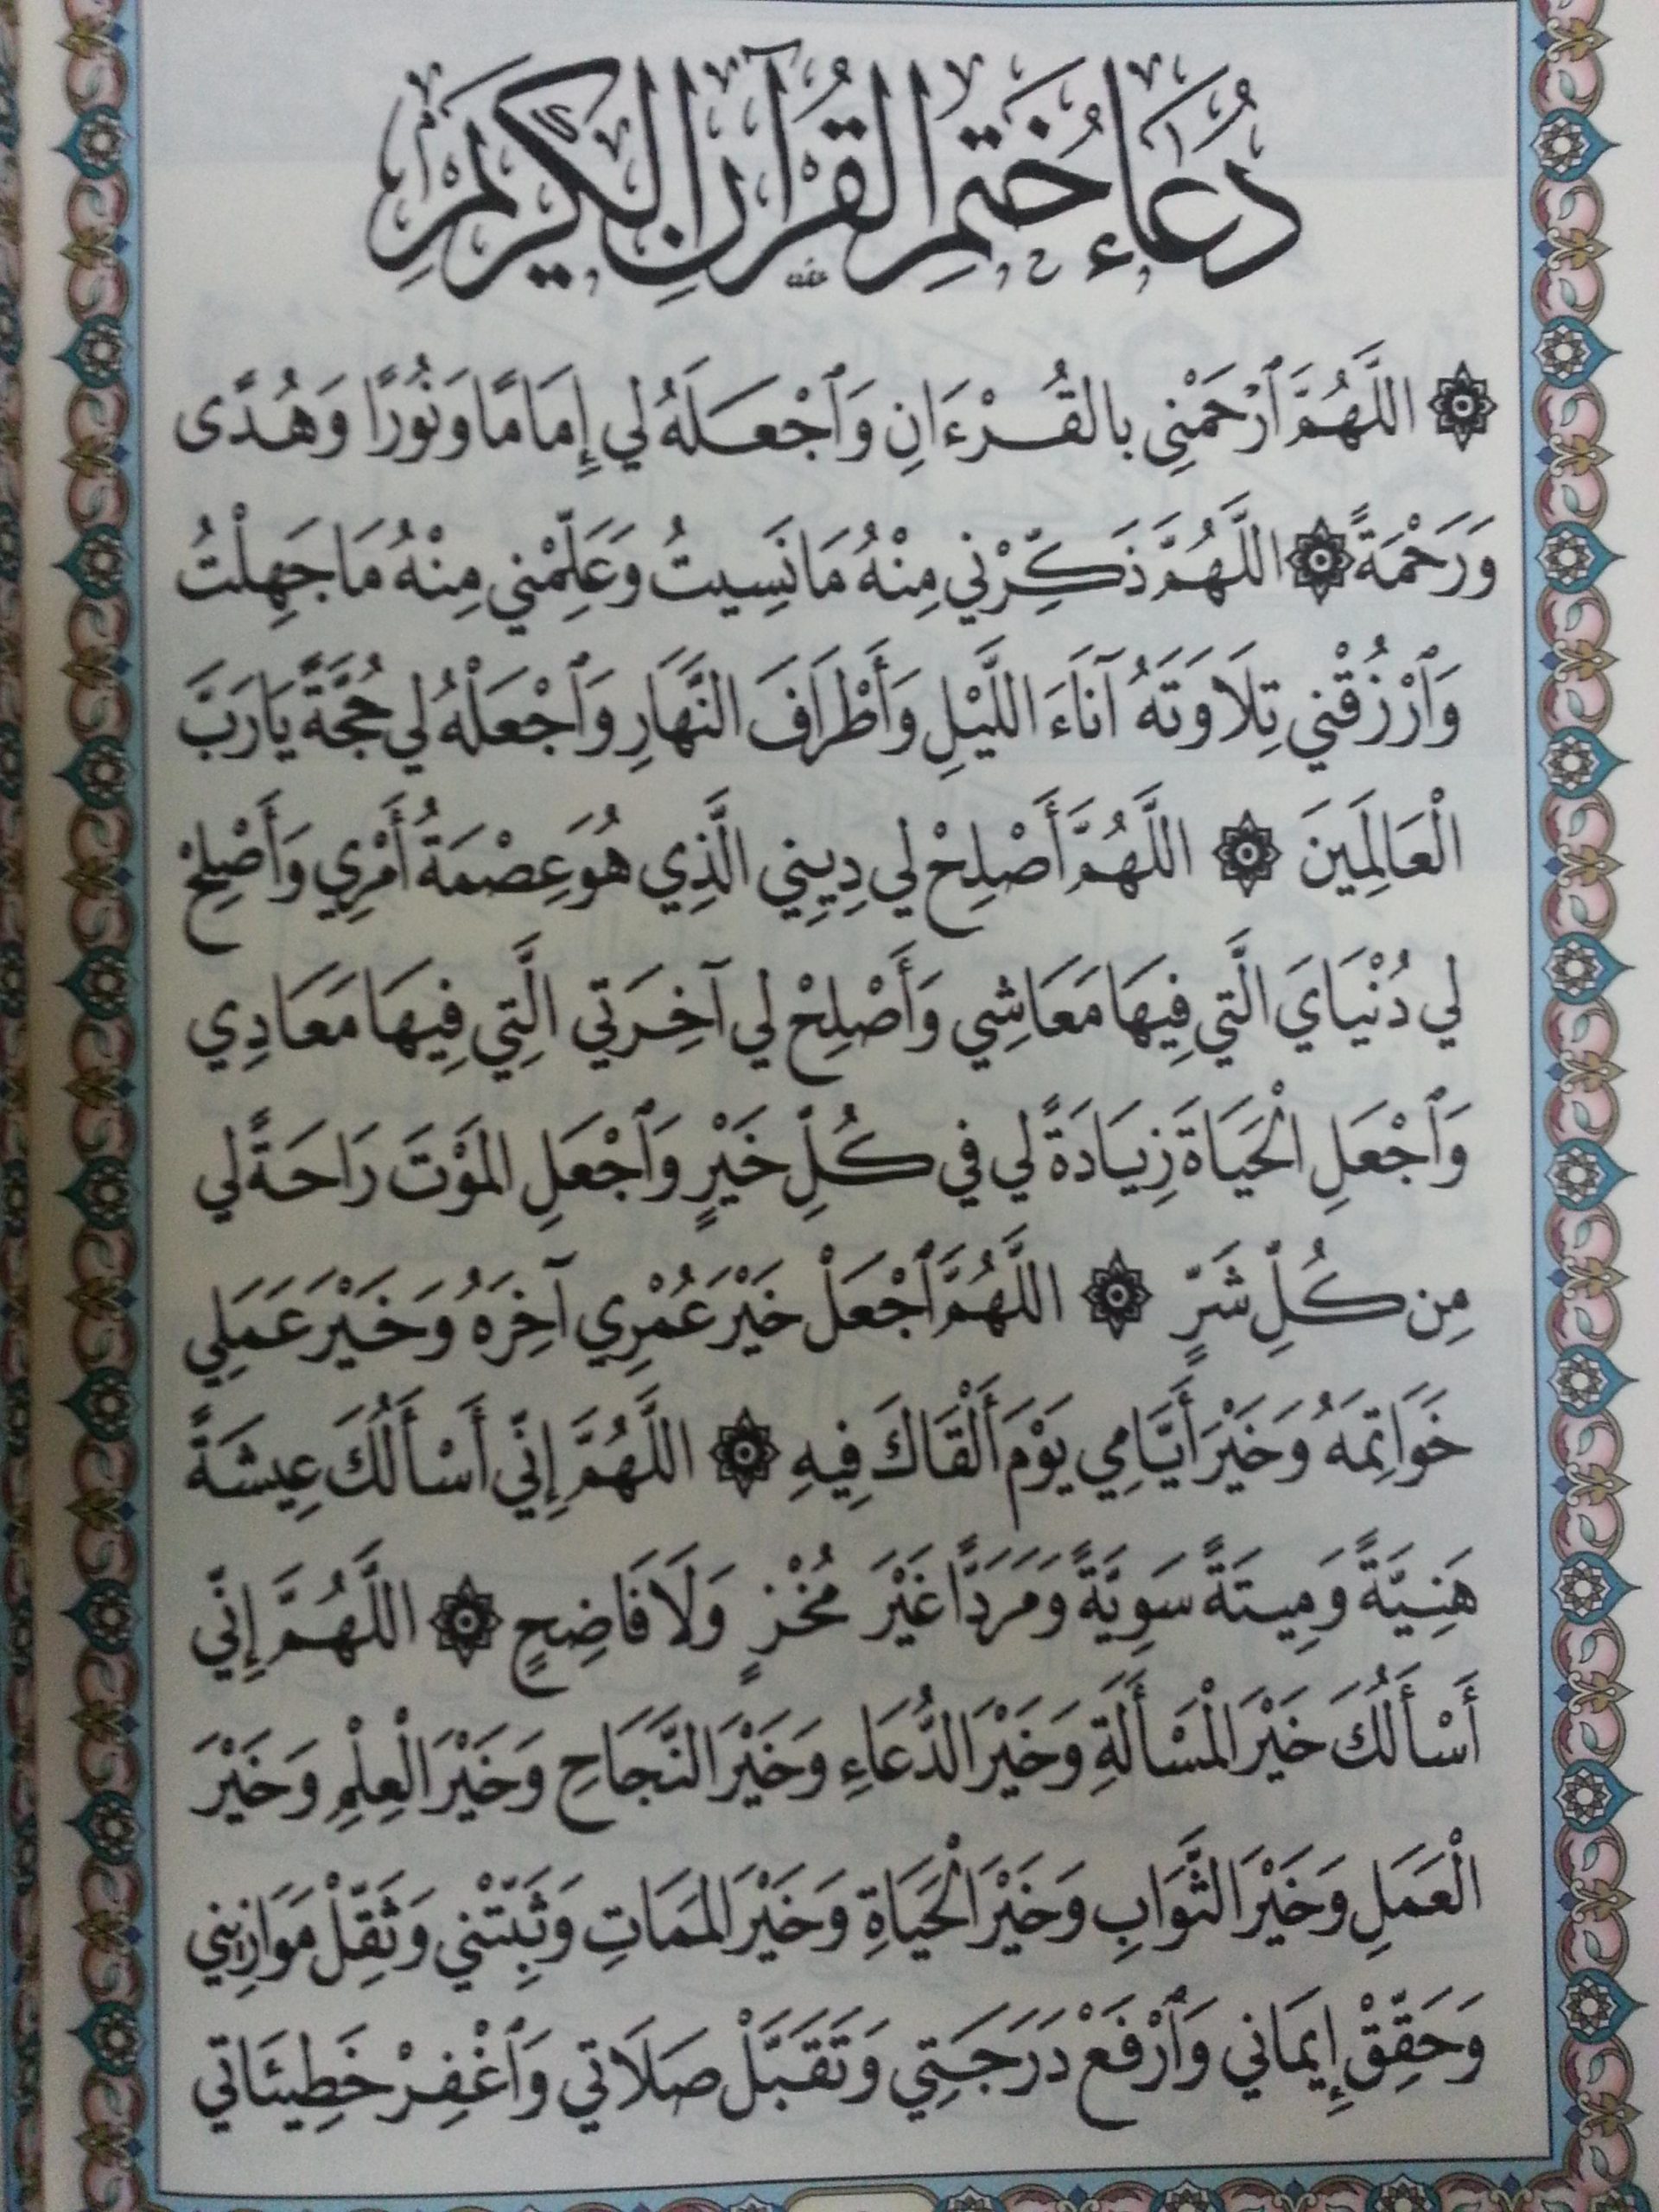 دُعَاءُ خَتْمِ القُرْآنِ الكَرِيمِ
۞ اللَّهُمَّ ٱرْحَمْنِي بالقُرْءَانِ وَٱجْعَلَهُ لي إِمَامًا وَنُورًا وَهُدًى
وَرَحْمَةً ۞ اللَّهُمَّ ذَكِّرْني مِنْهُ مَا نَسِيتُ وَعَلِّمْني مِنْهُ مَا جَهِلْتُ
وَٱرْزُقْني تِلَاوَتَهُ آنَاءَ اللَّيْلِ وَأَطْرَافَ النَّهَارِ وَٱجْعَلْهُ لي حُجَّةً يَا رَبَّ
الْعَالَمِينَ ۞ اللَّهُمَّ أَصْلِحْ لي دِيِني الَّذِي هُوَ عِصْمَةُ أَمْرِي وَأَصْلِحْ
لي دُنْيَايَ الَّتي فِيهَا مَعَاشِي وَأَصْلِحْ لي آخِرَتي الَّتِي فِيهَا مَعَادِي
وَٱجْعَلِ الْحَيَاةَ زِيَادَةً لي في كُلِّ خَيْرٍ وَٱجْعَلِ المَوْتَ رَاحَةً لي
مِن كُلِّ شَرٍّ ۞ اللَّهُمَّ ٱجْعَلْ خَيْرَ عُمْرِي آخِرَهُ وَخَيْرَ عَمَلِي
خَوَاتِمَهُ وَخَيْرَ أَيَّامِي يَوْمَ أَلْقَاكَ فِيهِ ۞ اللَّهُمَّ إِنّي أَسْأَلُكَ عِيشَةً
هَنِيَّةً وَمِيتَةً سَوِيَّةً وَمَرَدًّا غَيْرَ مُخْزٍ وَلَا فَاضِحٍ ۞ اللَّهُمَّ إِنّي
أَسْأَلُكَ خَيْرَ الْمَسْأَلَةِ وَخَيْرَ الدُّعَاءِ وَخَيْرَ النَّجَاحِ وَخَيْرَ الْعِلْمِ وَخَيْرَ
الْعَمَلِ وَخَيْرَ الثَّوَابِ وَخَيْرَ الْحَيَاةِ وَخَيْرَ المَمَاتِ وَثَبِّتْني وَثَقِّلْ مَوَازِيني
وَحَقِّقْ إِيمَاني وَٱرْفَعْ دَرَجَتِي وَتَقَبَّلْ صَلَاتي وَٱغْفِرْ خَطِيئَاتي